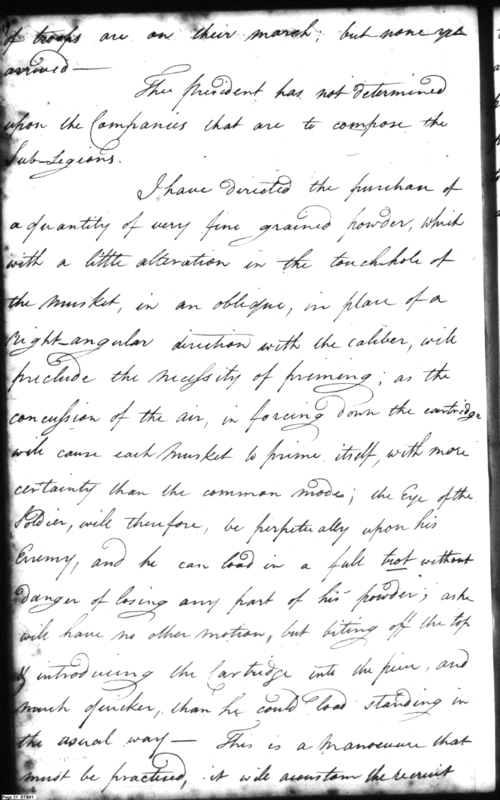 of troops are on their march; but none yet
arrived —
The President has not determined
upon the Companies that are to compose the
Sub-Legions.
I have directed the purchase of
a quantity of very fine grained powder, which
with a little alteration in the touchhole of
the musket, in an oblique, in place of a
Right-angular direction with the caliber, will
preclude the necessity of preming; as the
concussion of the air, in forcing down the cartridge
will cause each Musket to prime itself, with more
certainty than the common mode; the Eye of the
Soldier, will therefore, be perpetually upon his
Enemy, and he can load in a full trot without
danger of losing any part of his powder; as he
will have no other motion, but biting off the top
& introducing the Cartridge into the piece, and
much quicker, than he could load standing in
the usual way — This is a Manoeuvre that
must be practiced, it will accustom the recruit